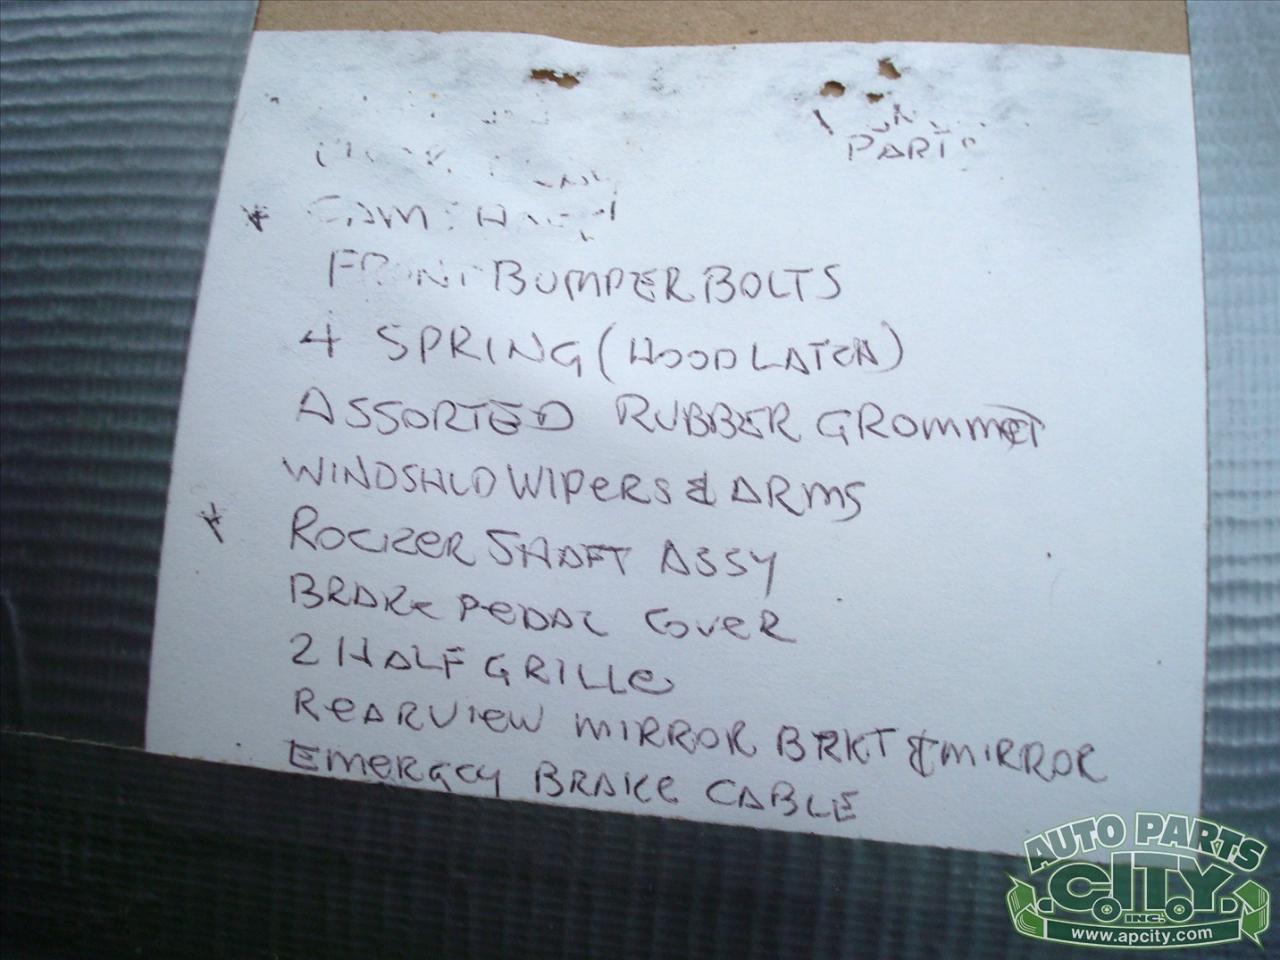 PARTS
* CAMSHAFT
FRONT BUMPER BOLTS
4 SPRING (HOOD LATCH)
ASSORTED RUBBER GROMMET
WINDSHLD WIPERS & ARMS
* ROCKER SHAFT ASSY
BRAKE PEDAL COVER
2 HALF GRILLE
REARVIEW MIRROR BRKT & MIRROR
EMERGCY BRAKE CABLE
AUTO PARTS
C.I.T.Y.
INC.
www.apcity.com